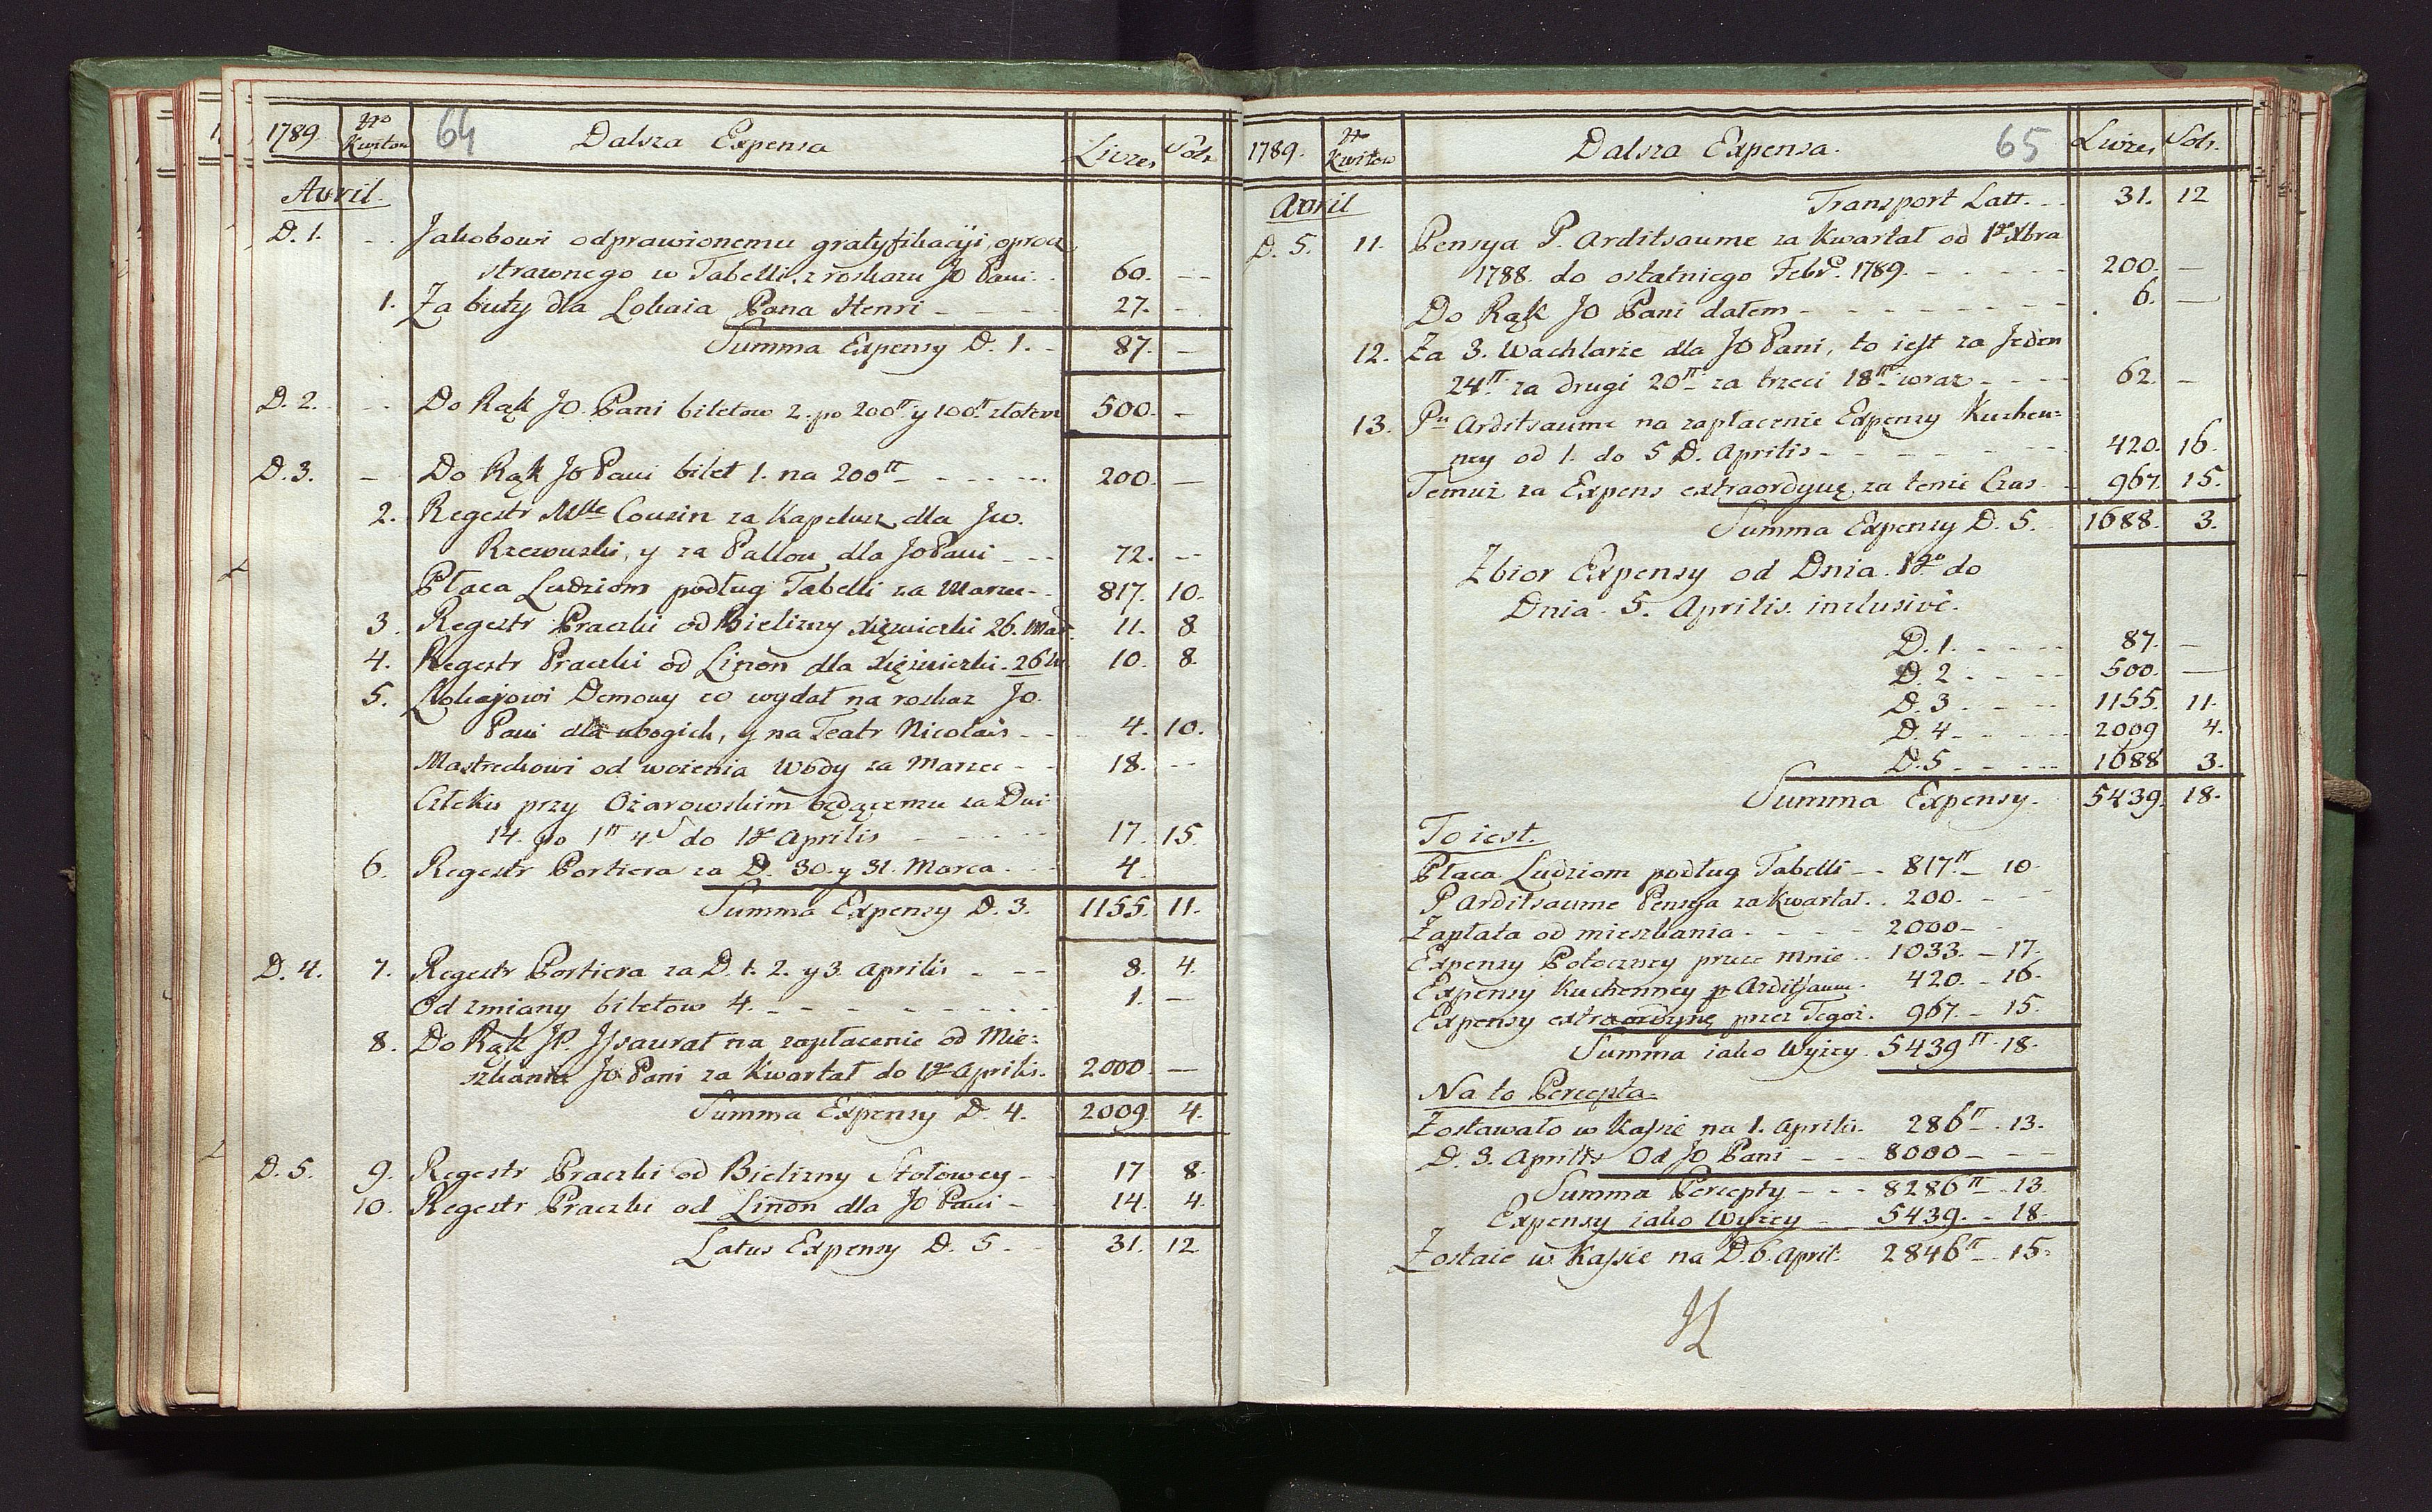 1789. No Kwitow 64 Dalsza Expensa Livres Sols
Avril.
D. 1. Jakobowi odprawionemu gratyfikacyi, oprocz
strawnego w Tabelli, z roskazu JO Pani 60. —
1. Za buty dla Lokaia Pana Henri 27. —
Summa Expensy D. 1. 87. —
D. 2. Do Rąk JO. Pani biletow 2. po 200tt y 100tt złotem 500. —
D. 3. — Do Rąk JO Pani bilet 1. na 200tt 200. —
2. Regestr Mlle Cousin za Kapelusz dla Jw.
Rzewuski, y za Pallou dla JO Pani 72. —
Płaca Ludziom podług Tabelli za Marzec 817. 10.
3. Regestr Praczki od Bielizny Xiężniczki 26. Mar. 11. 8.
4. Regestr Praczki od Linon dla Xiężniczki 26 10. 8.
5. Lokajowi Demony co wydał na roskaz JO.
Pani dla ubogich, y na Teatr Nicolais 4. 10.
Mastrechowi od wożenia Wody za Marzec 18. —
Człeku przy Ożarowskim będącemu za Dni
14. po 1tt 4S do 1go Aprilis 17. 15
6. Regestr Portiera za D. 30. y 31. Marca. 4.
Summa Expensy D. 3. 1155. 11.
D. 4. 7. Regestr Portiera za D. 1. 2. y 3. Aprilis 8. 4.
Od zmiany biletow 4. 1. —
8. Do Rąk JP. Jssaurat na zapłacenie od Mie=
szkania JO Pani za Kwartał do 1go Aprilis. 2000. —
Summa Expensy D. 4. 2009. 4.
D. 5. 9. Regestr Praczki od Bielizny Stołowey 17 8.
10. Regestr Praczki od Linon dla JO Pani 14. 4.
Latus Expensy D. 5. 31. 12
1789. No Kwitow Dalsza Expensa. 65 Livres Sols.
Avril Transport Latt. 31. 12
D. 5. 11. Pensya P. Arditsaume za Kwartał od 1go Xbra
1788. do ostatniego Febr. 1789. 200. —
Do Rąk JO Pani dałem 6. —
12. Za 3. Wachlarze dla JO Pani, to iest za Jeden
24tt za drugi 20tt za trzeci 18tt wraz 62. —
13. Pu Arditsaume na zapłacenie Expensy Kuchen=
ney od 1. do 5 D. Aprilis 420. 16.
Temuż za Expens extraordynę, za tenże Czas 967. 15.
Summa Expensy D. 5. 1688. 3.
Zbior Expensy od Dnia 1go do
Dnia 5. Aprilis. inclusivè.
D. 1. 87. —
D. 2 500. —
D. 3 1155. 11.
D. 4 2009 4.
D. 5 1688 3.
Summa Expensy. 5439. 18.
To iest.
Płaca Ludziom podług Tabelli 817tt 10.
P Arditsaume Pensya za Kwartał 200.
Zapłata od mieszkania 2000
Expensy Potoczney przeze mnie 1033. 17.
Expensy Kuchenney p. Arditsaum. 420. 16.
Expensy extraordynę przez Tegoż. 967. 15.
Summa iako Wyżey. 5439tt 18.
Na to Percepta.
Zostawało w Kassie na 1. Aprilis. 286tt 13.
D. 3. Aprilis Od JO Pani 8000
Summa Percepty 8286tt 13.
Expensy iako Wyżey 5439. 18.
Zostaie w Kassie na D. 6. April. 2846tt 15.